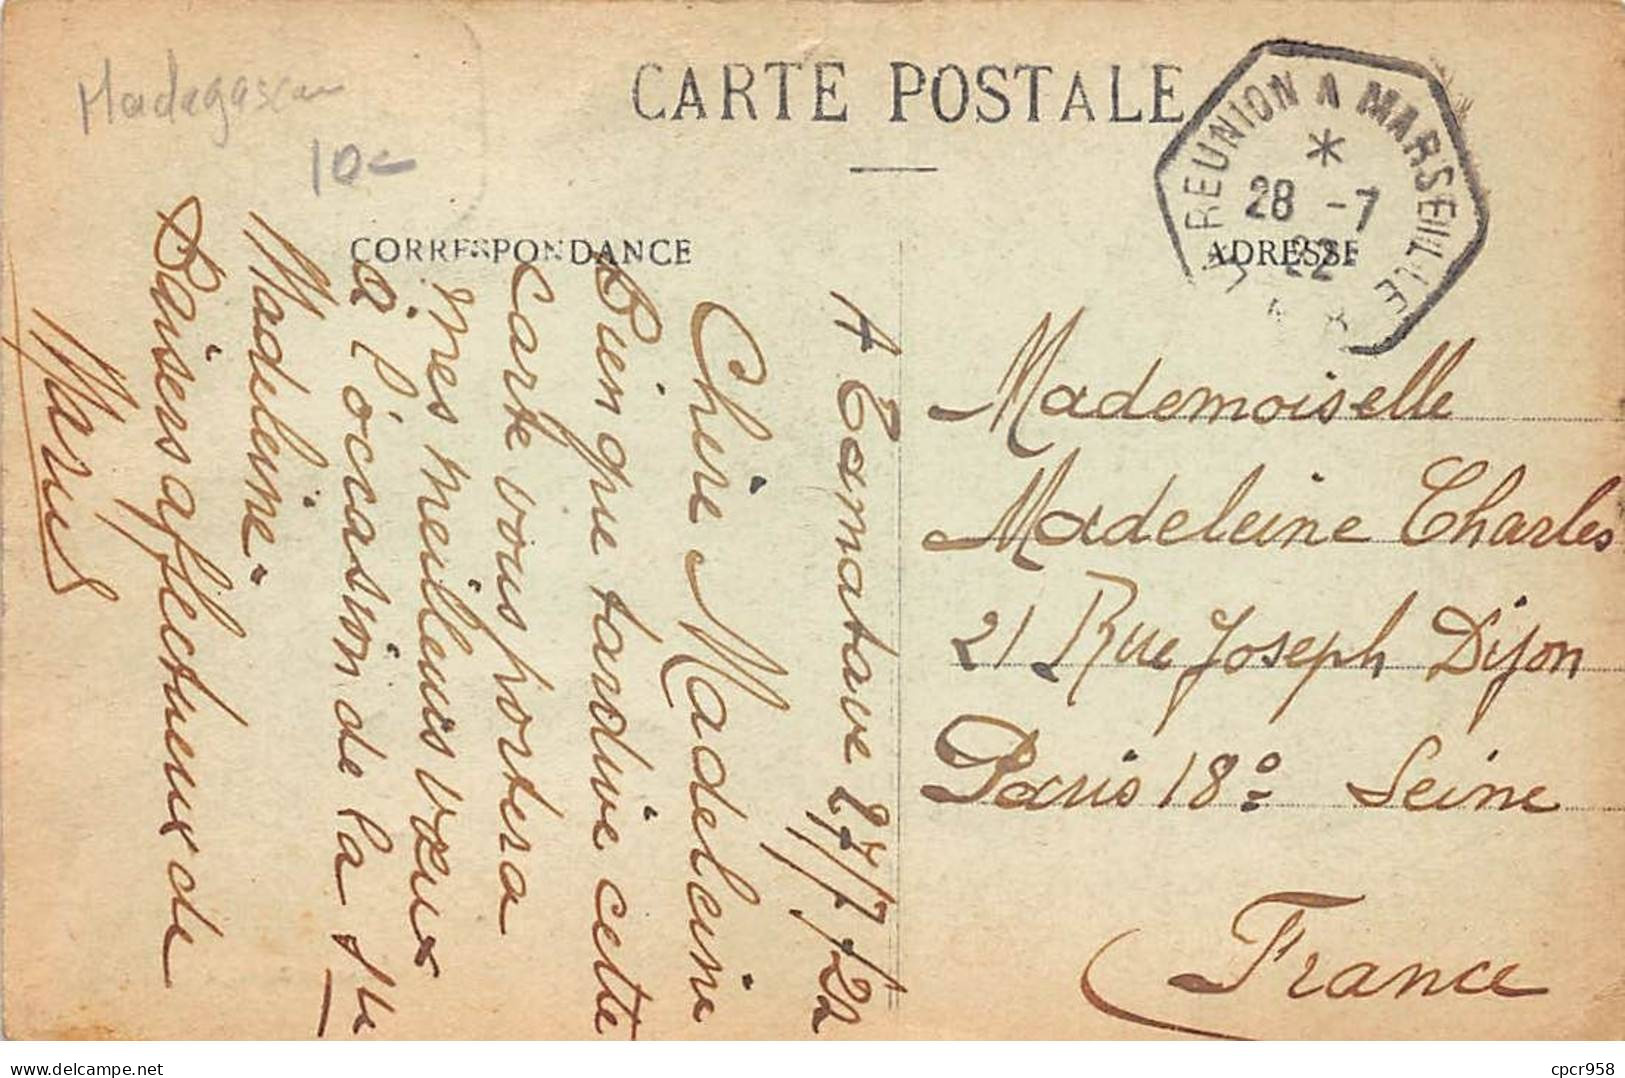 Madagascar
10
CARTE POSTALE
CORRESPONDANCE
ADRESSE
REUNION A MARSEILLE
*
28 -7
22
A Tamatave 27/7/22
Chère Madeleine
Bien que tardive cette
Carte vous portera
mes meilleurs vœux
à l'occasion de la Ste
Madeleine.
Baisers affectueux de
Mademoiselle
Madeleine Charles
21 Rue Joseph Dijon
Paris 18e Seine
France
cpcr958